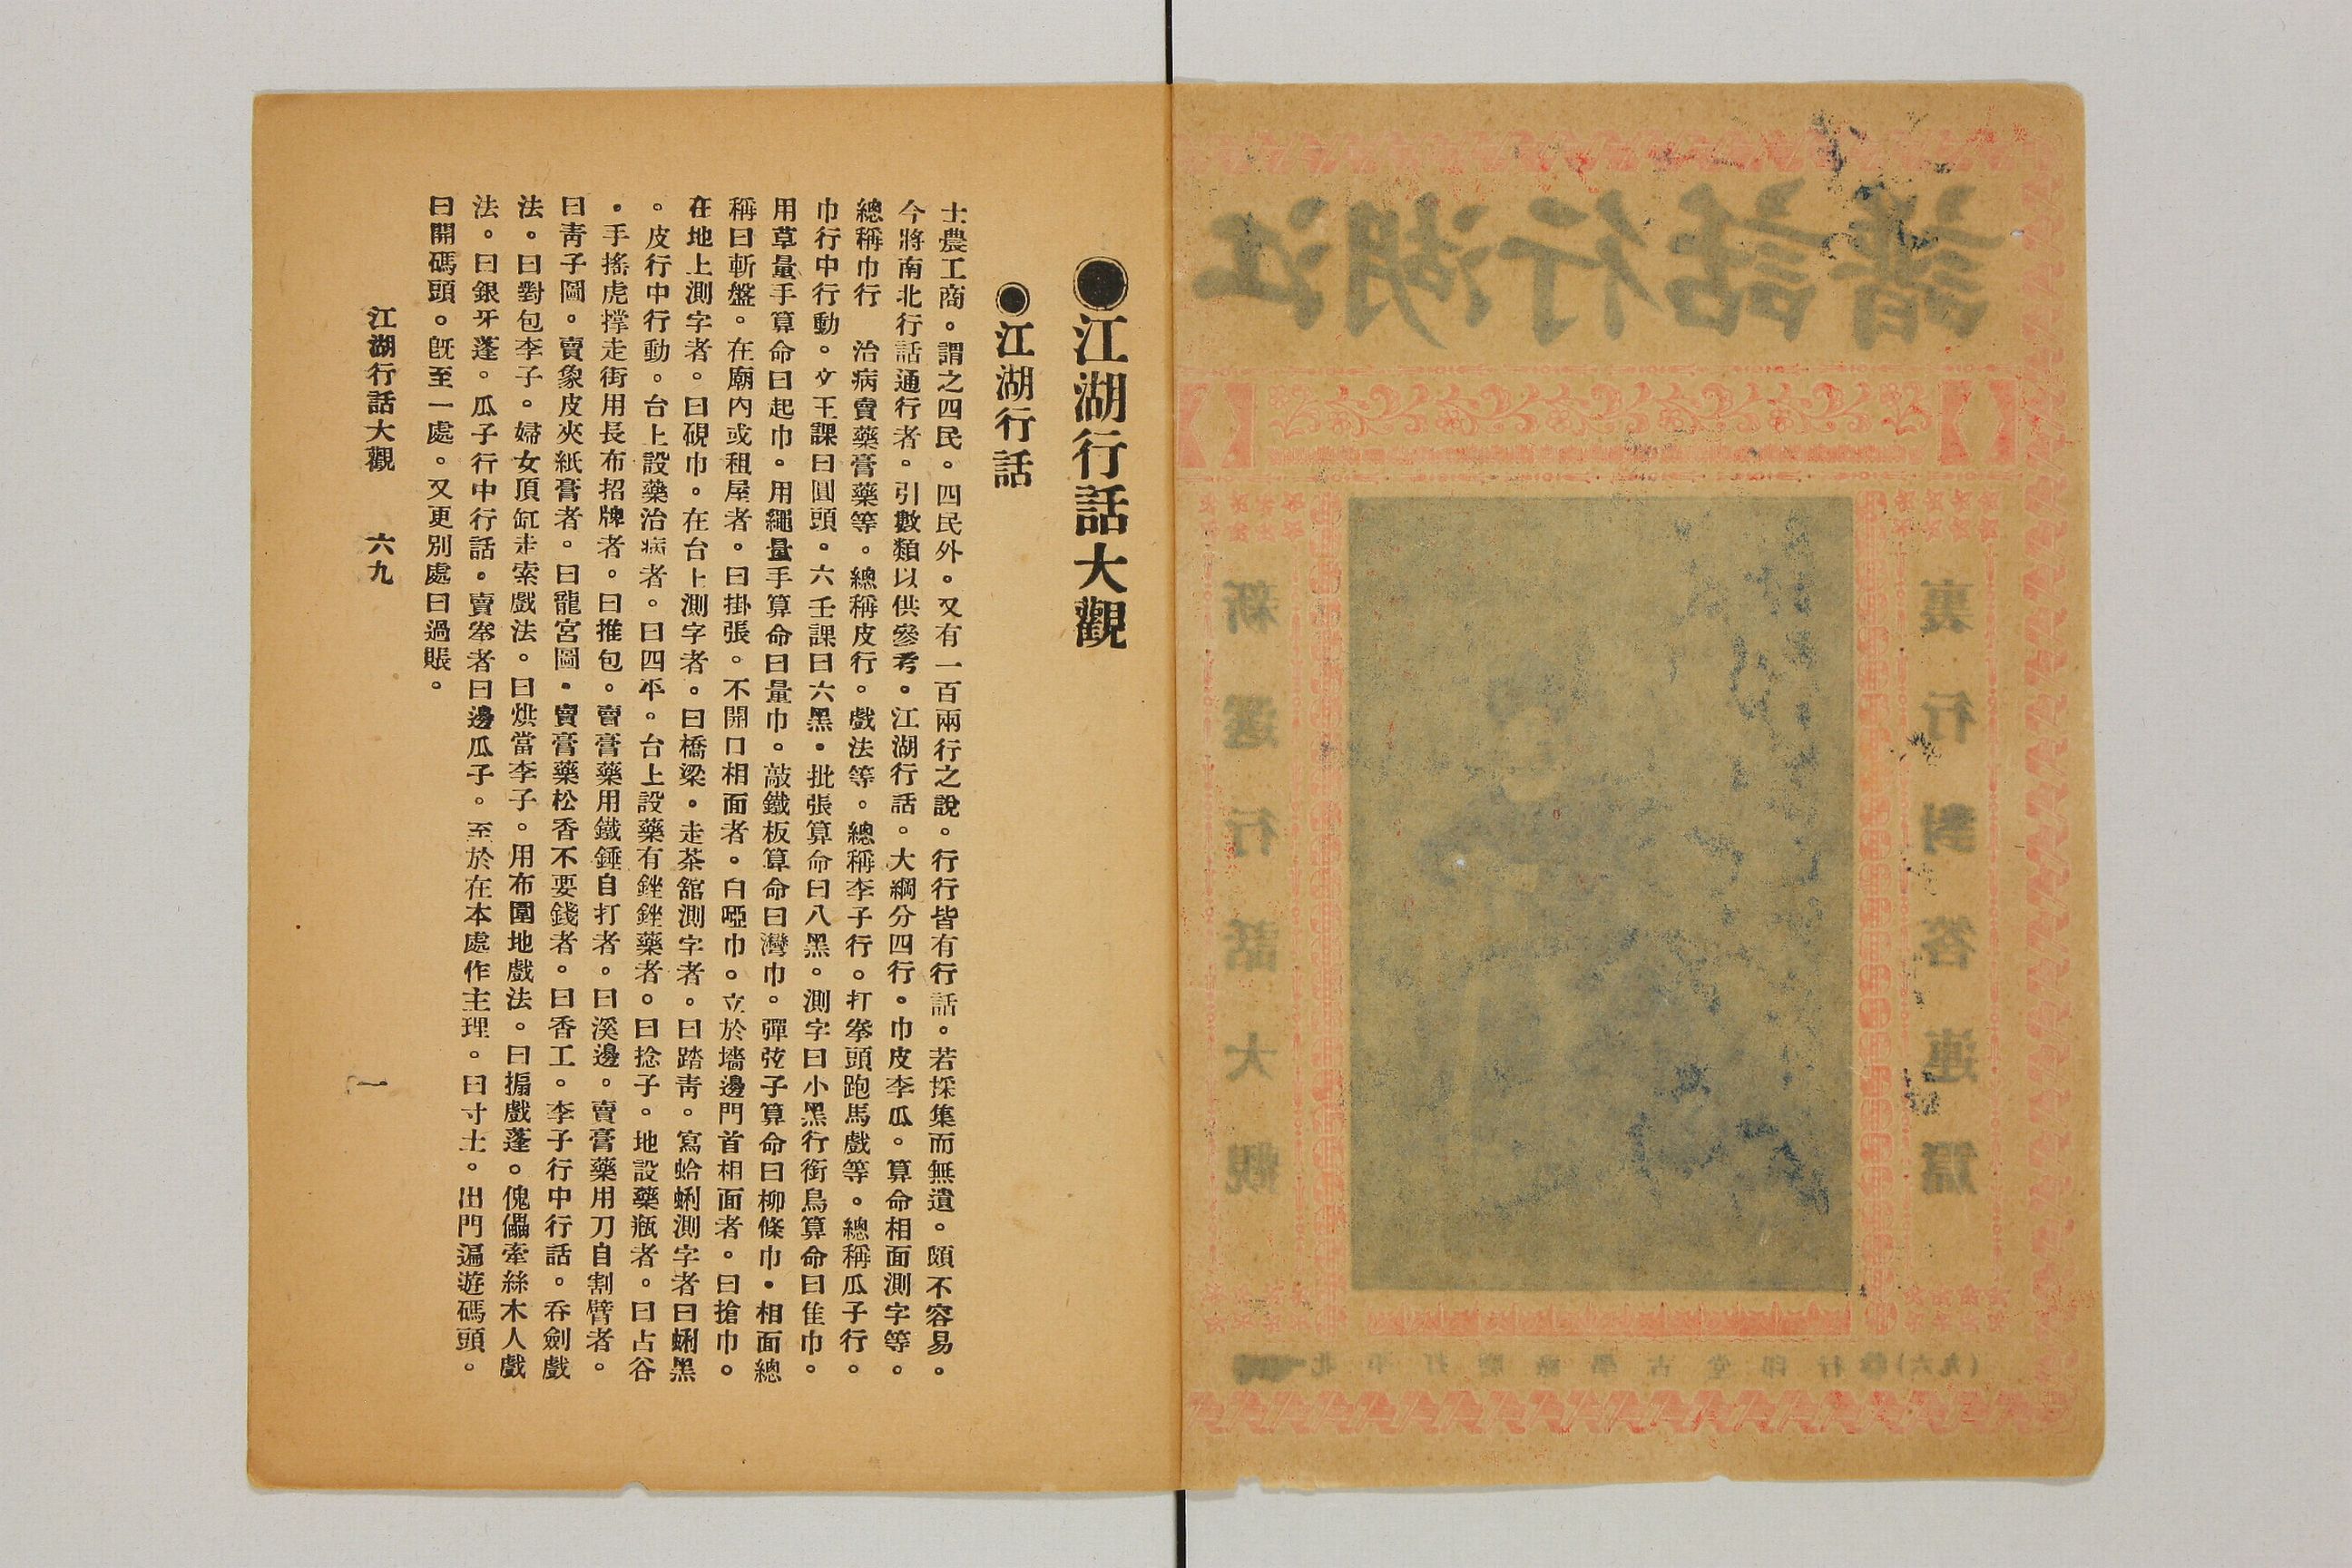 江湖行話譜
裏行對答連篇
新選行話大觀
●江湖行話大觀
●江湖行話
士農工商。謂之四民。四民外。又有一百兩行之說。行行皆有行話。若採集而無遺。頗不容易。
今將南北行話通行者。引數類以供參考。江湖行話。大綱分四行。巾皮李瓜。算命相面測字等。
總稱巾行　治病賣藥膏藥等。總稱皮行。戲法等。總稱李子行。打拳頭跑馬戲等。總稱瓜子行。
巾行中行動。文王課曰圓頭。六壬課曰六黑。批張算命曰八黑。測字曰小黑行銜鳥算命曰隹巾。
用草量手算命曰起巾。用繩量手算命曰量巾。敲鐵板算命曰灣巾。彈弦子算命曰柳條巾。相面總
稱曰斬盤。在廟內或租屋者。曰掛張。不開口相面者。曰啞巾。立於墻邊門首相面者。曰搶巾。
在地上測字者。曰硯巾。在台上測字者。曰橋梁。走茶舘測字者。曰踏靑。寫蛤蜊測字者曰蜊黑
。皮行中行動。台上設藥治病者。曰四平。台上設藥有銼銼藥者。曰捻子。地設藥瓶者。曰占谷
。手搖虎撑走街用長布招牌者。曰推包。賣膏藥用鐵錘自打者。曰溪邊。賣膏藥用刀自割臂者。
曰靑子圖。賣象皮夾紙膏者。曰龍宮圖。賣膏藥松香不要錢者。曰香工。李子行中行話。吞劍戲
法。曰對包李子。婦女頂缸走索戲法。曰烘當李子。用布圍地戲法。曰搧戲蓬。傀儡牽絲木人戲
法。曰銀牙蓬。瓜子行中行話。賣拳者曰邊瓜子。至於在本處作主理。曰寸土。出門遍遊碼頭。
曰開碼頭。旣至一處。又更別處曰過賬。
江湖行話大觀　六九　一